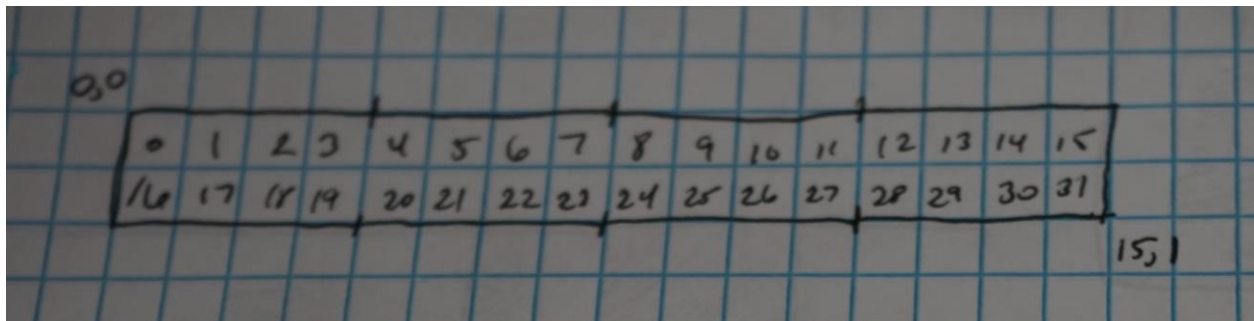 0,0
0 1 2 3 4 5 6 7 8 9 10 11 12 13 14 15
16 17 18 19 20 21 22 23 24 25 26 27 28 29 30 31
15,1